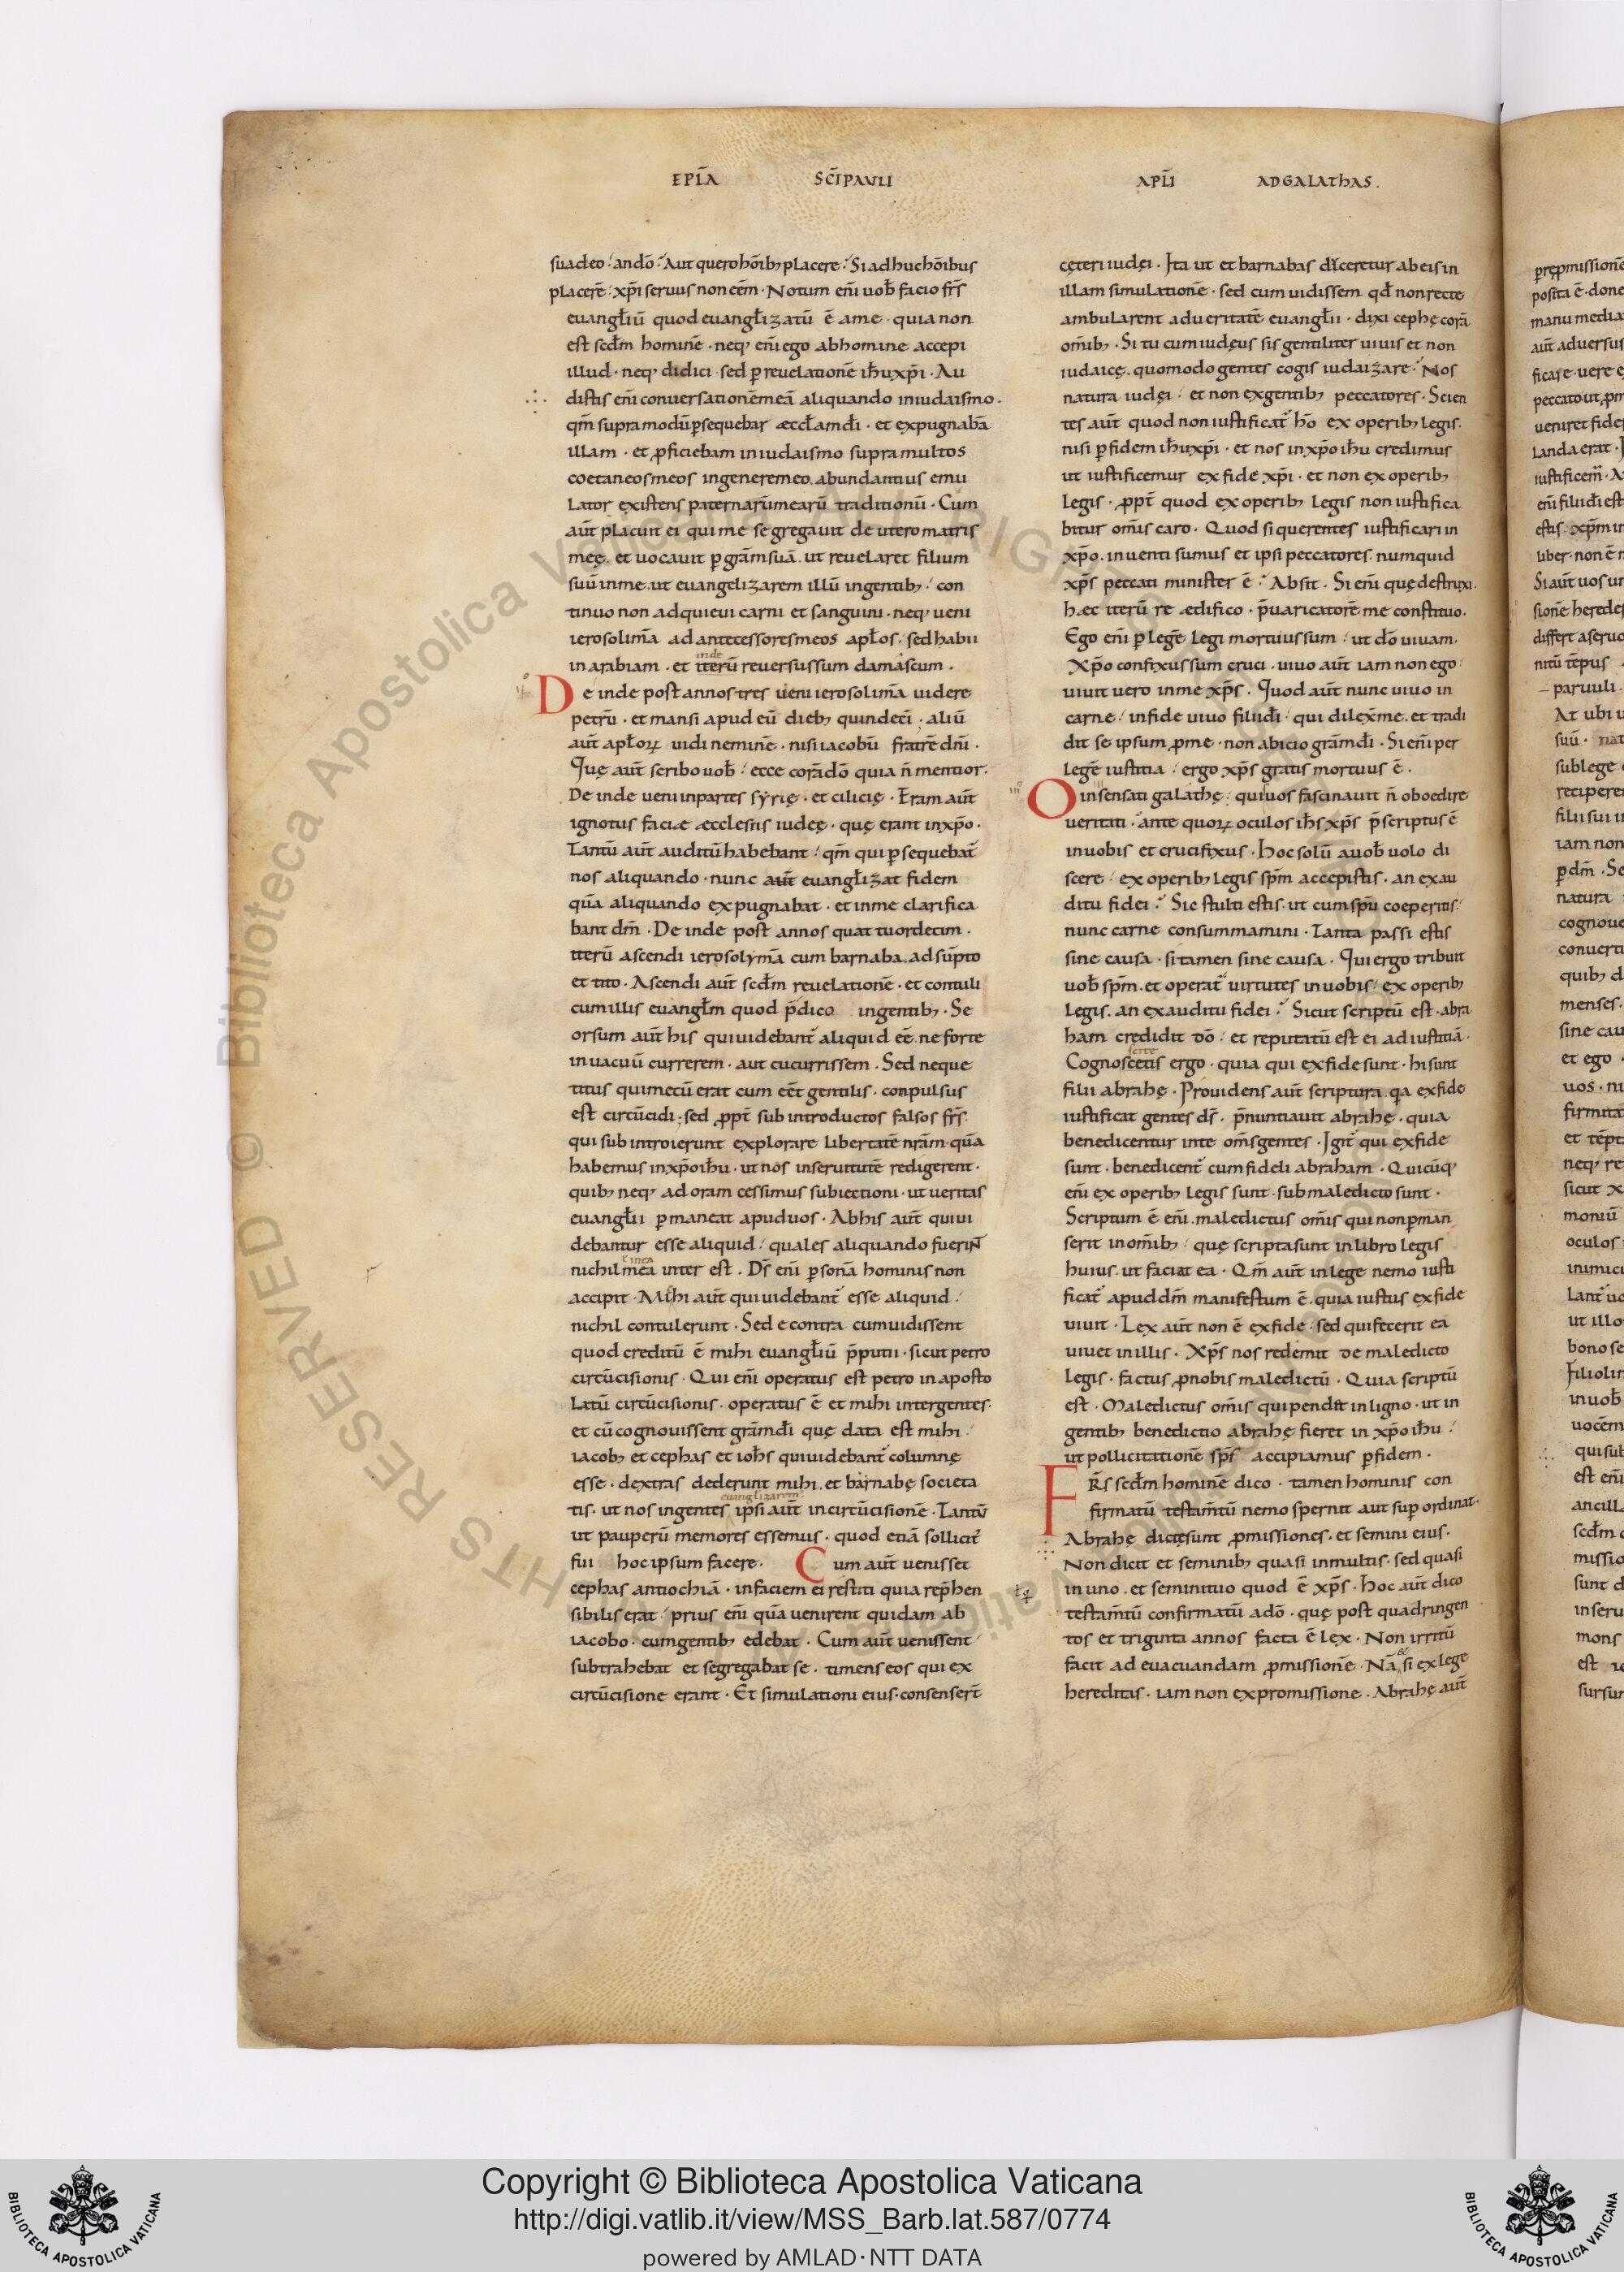 EPLA SCI PAULI APLI AD GALATHAS.
suadeo? an dō? Aut quero hōib; placere? Si adhuc hōibus
placerē? xp̄i seruus non eēm. Notum eni uob̄ facio frs̄
euangłiū quod euangłizatū ē a me. quia non
est scdm̄ hominē. neq; eni ego ab homine accepi
illud. neq; didici. sed p reuelationē ih̄u xp̄i. Au
distis eni conuersationē meā aliquando in iudaismo.
qm̄ supra modū psequebar æccłam dī. et expugnabā
illam. et pficiebam in iudaismo supra multos
coetaneos meos in genere meo. abundantius emu
lator existens paternarū mearū traditionū. Cum
aūt placuit ei qui me segregauit de utero matris
meę. et uocauit p grām suā. ut reuelaret filium
suū in me. ut euangelizarem illū in gentib; con
tinuo non adquieui carni et sanguini. neq; ueni
ierosolimā ad antecessores meos apłos. sed habii
inde
in arabiam. et iterū reuersus sum damascum.
De inde post annos tres ueni ierosolimā uidere
petrū. et mansi apud eū dieb; quindeci. aliū
aūt apłoꝝ uidi neminē. nisi iacobū fratrē dn̄i.
Quę aūt scribo uob̄ ecce corā dō quia n̄ mentior.
De inde ueni in partes syrię. et cilicię. Eram aūt
ignotus faciæ æcclesiis iudeę. quę erant in xp̄o.
Tantū aūt auditū habebant qm̄ qui psequebat
nos aliquando. nunc aūt euangłizat fidem
quā aliquando expugnabat. et in me clarifica
bant dm̄. De inde post annos quattuordecim.
iterū ascendi ierosolymā cum barnaba. adsūpto
et tito. Ascendi aūt scdm̄ reuelationē. et contuli
cum illis euangłm quod p̄dico in gentib;. Se
orsum aūt his qui uidebant aliquid eē. ne forte
in uacuū currerem. aut cucurrissem. Sed neque
titus qui mecū erat cum eēt gentilis. conpulsus
est circūcidi. sed ppt̄ subintroductos falsos frs̄.
qui subintroierunt explorare libertatē nrām quā
habemus in xp̄o ih̄u. ut nos in seruitutē redigerent.
quib; neq; ad oram cessimus subiectioni. ut ueritas
euangłii pmaneat apud uos. Ab his aūt qui ui
debantur esse aliquid. quales aliquando fuerint
nichil mea inter est. Ds̄ eni psonā hominis non
accipit. Mihi aūt qui uidebant esse aliquid.
nichil contulerunt. Sed econtra cum uidissent
quod creditū ē mihi euangłiū p̄putii. sicut petro
circūcisionis. Qui eni operatus est petro in aposto
latū circūcisionis. operatus ē et mihi inter gentes.
et cū cognouissent grām dī quę data est mihi.
iacob; et cephas et ioh̄s qui uidebant columnę
esse. dextras dederunt mihi. et barnabę societa
euanglizarem
tis. ut nos in gentes ipsi aūt in circūcisionē. Tantū
ut pauperū memores essemus. quod etiā sollicit
fui hoc ipsum facere. Cum aūt uenisset
cephas antiochiā. in faciem ei restiti quia rep̄hen
sibilis erat. prius eni quā uenirent quidam ab
iacobo. cum gentib; edebat. Cum aūt uenissent
subtrahebat et segregabat se. timens eos qui ex
circūcisione erant. Et simulationi eius. consensert̄
cęteri iudęi. Ita ut et barnabas duceretur ab eis in
illam simulationē. sed cum uidissem qd̄ non recte
ambularent ad ueritatē euangłii. dixi cephę corā
om̄ib;. Si tu cum iudęus sis gentiliter uiuis et non
iudaicę. quomodo gentes cogis iudaizare? Nos
natura iudęi. et non ex gentib; peccatores. Scien
tes aūt quod non iustificat hō ex operib; legis.
nisi p fidem ih̄u xp̄i. et nos in xp̄o ih̄u credimus
ut iustificemur ex fide xp̄i. et non ex operib;
legis. ppt̄ quod ex operib; legis non iustifica
bitur om̄is caro. Quod si querentes iustificari in
xp̄o. inuenti sumus et ipsi peccatores. numquid
xp̄s peccati minister ē? Absit. Si eni quę destruxi.
hæc iterū reædifico. p̄uaricatorē me constituo.
Ego eni p legē legi mortuus sum. ut dō uiuam.
Xp̄o confixus sum cruci. uiuo aūt iam non ego.
uiuit uero in me xp̄s. Quod aūt nunc uiuo in
carne. in fide uiuo filii dī. qui dilex̄ me. et tradi
dit se ipsum p me. non abicio grām dī. Si eni per
legē iustitia. ergo xp̄s gratis mortuus ē.
O insensati galathę. qui uos fascinauit n̄ oboedire
ueritati. ante quoꝝ oculos ih̄s xp̄s p̄scriptus ē
in uobis et crucifixus. Hoc solū a uob̄ uolo di
scere. ex operib; legis spm̄ accepistis. an ex au
ditu fidei? Sic stulti estis. ut cum spū coeperitis.
nunc carne consummamini. Tanta passi estis
sine causa. si tamen sine causa. Qui ergo tribuit
uob̄ spm̄. et operat uirtutes in uobis. ex operib;
legis. an ex auditu fidei? Sicut scriptū est. abra
ham credidit dō. et reputatū est ei ad iustitiā.
Cognoscetis ergo. quia qui ex fide sunt. hi sunt
filii abrahę. Prouidens aūt scriptura. qa ex fide
iustificat gentes ds̄. p̄nuntiauit abrahę. quia
benedicentur in te om̄s gentes. Igit qui ex fide
sunt. benedicent cum fideli abraham. Quicūq;
eni ex operib; legis sunt. sub maledicto sunt.
Scriptum ē eni. maledictus om̄is qui non pman
serit in om̄ib; quę scripta sunt in libro legis
huius. ut faciat ea. Qm̄ aūt in lege nemo iusti
ficat apud dm̄ manifestum ē. quia iustus ex fide
uiuit. Lex aūt non ē ex fide. sed qui fecerit ea
uiuet in illis. Xp̄s nos redemit de maledicto
legis. factus p nobis maledictū. Quia scriptū
est. Maledictus om̄is qui pendit in ligno. ut in
gentib; benedictio abrahę fieret in xp̄o ih̄u.
ut pollicitationē sps̄ accipiamus p fidem.
Frs̄ scdm̄ hominē dico. tamen hominis con
firmatū testam̄tū nemo spernit aut sup ordinat.
Abrahę dictę sunt pmissiones. et semini eius.
Non dicit et seminib; quasi in multis. sed quasi
in uno. et semini tuo quod ē xp̄s. Hoc aūt dico
testam̄tū confirmatū a dō. quę post quadringen
tos et triginta annos facta ē lex. Non irritū
facit ad euacuandam pmissionē. Nā si ex lege
hereditas. iam non ex promissione. Abrahę aūt
Copyright © Biblioteca Apostolica Vaticana
http://digi.vatlib.it/view/MSS_Barb.lat.587/0774
powered by AMLAD·NTT DATA